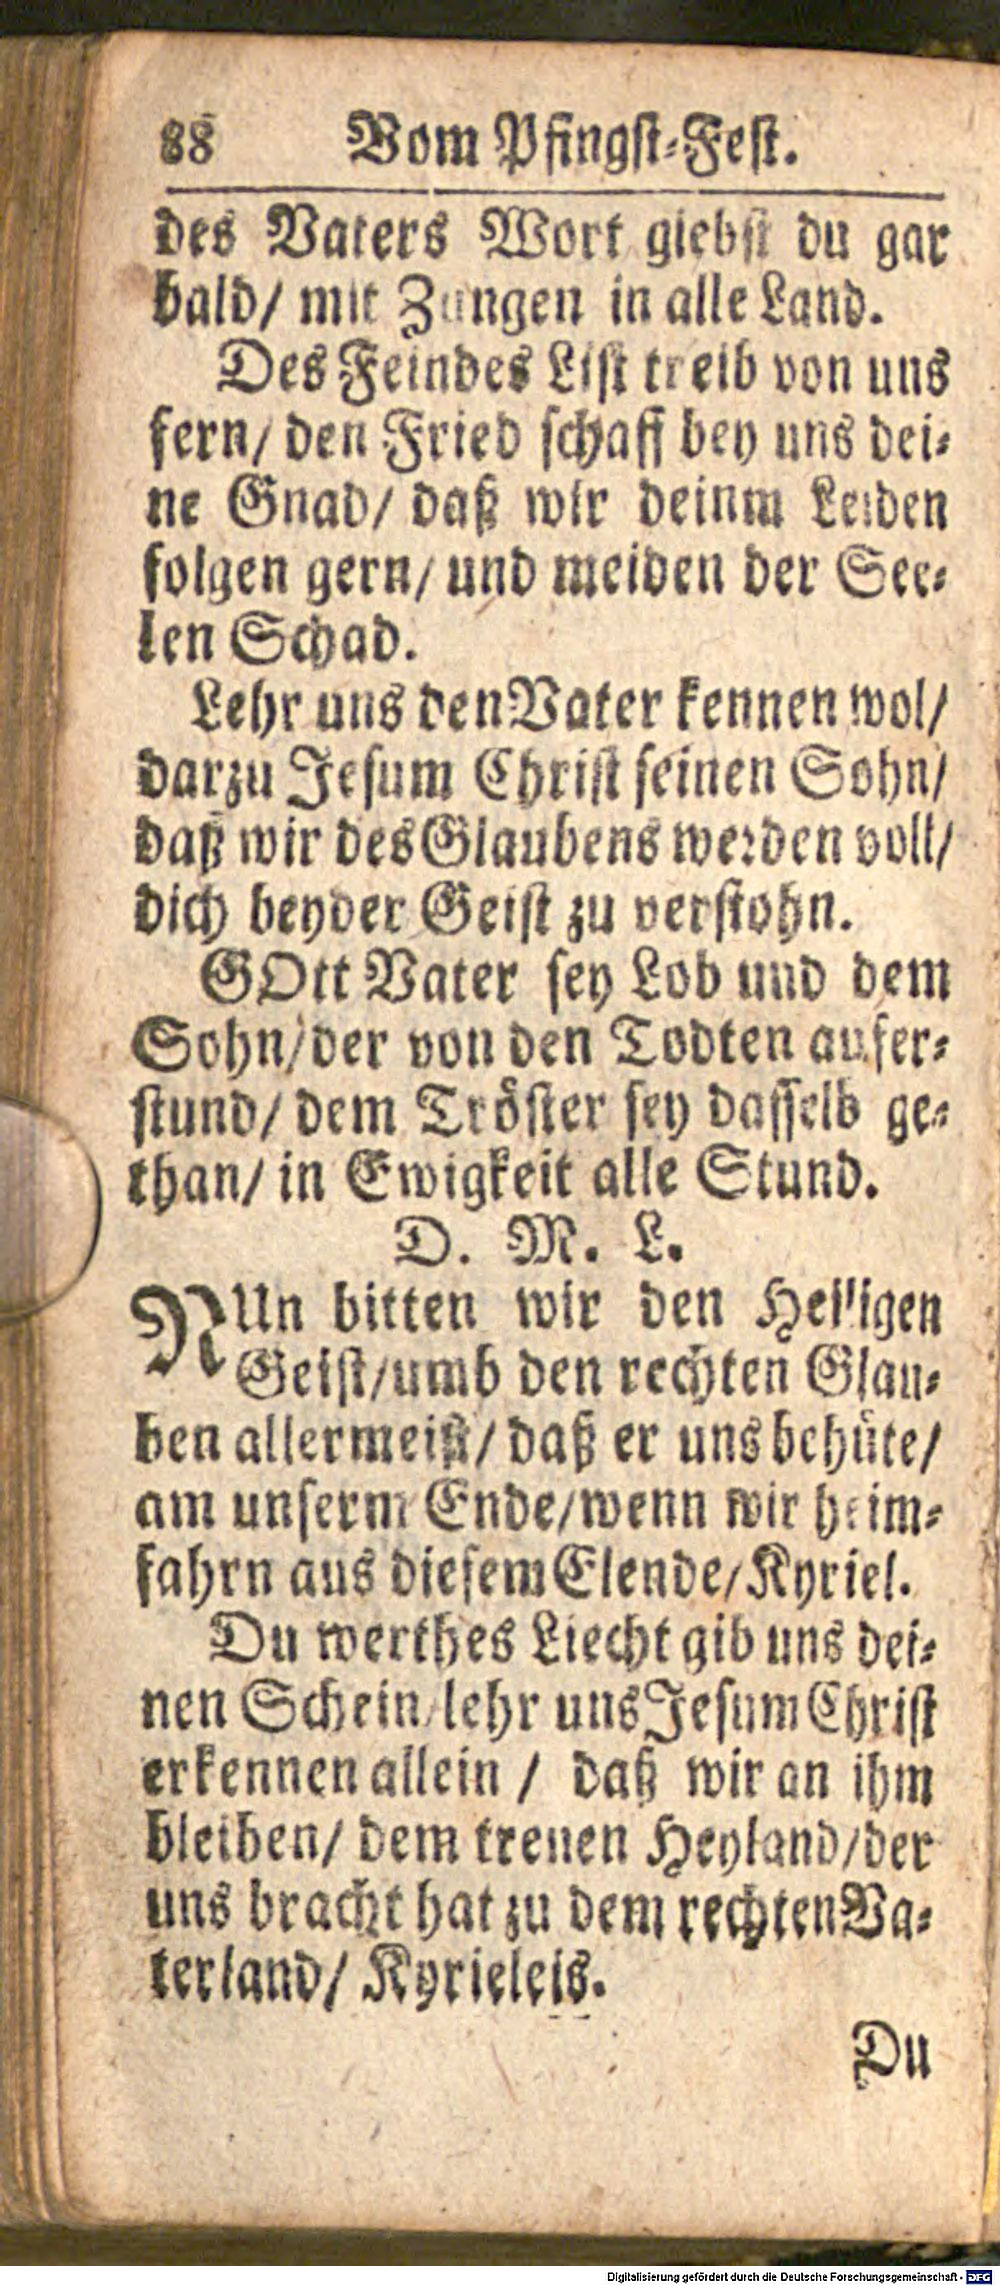 88 Vom Pfingst-Fest.
des Vaters Wort giebst du gar
bald/ mit Zungen in alle Land.
Des Feindes List treib von uns
fern/ den Fried schaff bey uns dei-
ne Gnad/ daß wir deinm Leiden
folgen gern/ und meiden der See-
len Schad.
Lehr uns den Vater kennen wol/
darzu Jesum Christ seinen Sohn/
daß wir des Glaubens werden voll/
dich beyder Geist zu verstohn.
GOtt Vater sey Lob und dem
Sohn/ der von den Todten aufer-
stund/ dem Tröster sey dasselb ge-
than/ in Ewigkeit alle Stund.
D. M. L.
NUn bitten wir den Heiligen
Geist/ umb den rechten Glau-
ben allermeist/ daß er uns behüte/
am unserm Ende/ wenn wir heim-
fahrn aus diesem Elende/ Kyriel.
Du werthes Liecht gib uns dei-
nen Schein/ lehr uns Jesum Christ
erkennen allein / daß wir an ihm
bleiben/ dem treuen Heyland/ der
uns bracht hat zu dem rechten Va-
terland/ Kyrieleis.
Du
Digitalisierung gefördert durch die Deutsche Forschungsgemeinschaft - DFG